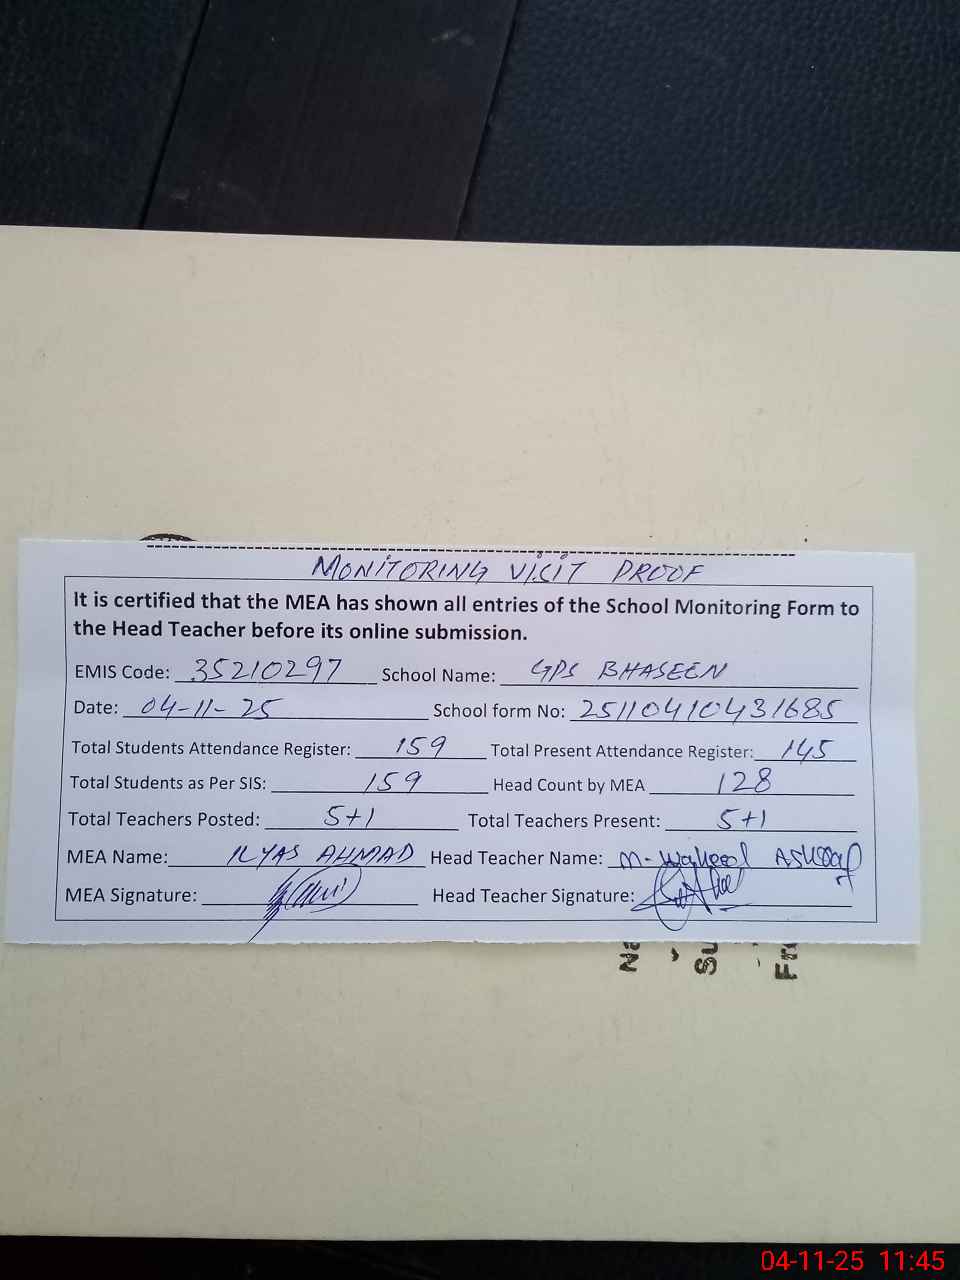 MONITORING VISIT PROOF
It is certified that the MEA has shown all entries of the School Monitoring Form to
the Head Teacher before its online submission.
EMIS Code: 35210297 School Name: GPS BHASEEN
Date: 04-11-25 School form No: 25110410431685
Total Students Attendance Register: 159 Total Present Attendance Register: 145
Total Students as Per SIS: 159 Head Count by MEA 128
Total Teachers Posted: 5+1 Total Teachers Present: 5+1
MEA Name: ILYAS AHMAD Head Teacher Name: M. Waheed Ashraf
MEA Signature: Head Teacher Signature:
Su
04-11-25 11:45